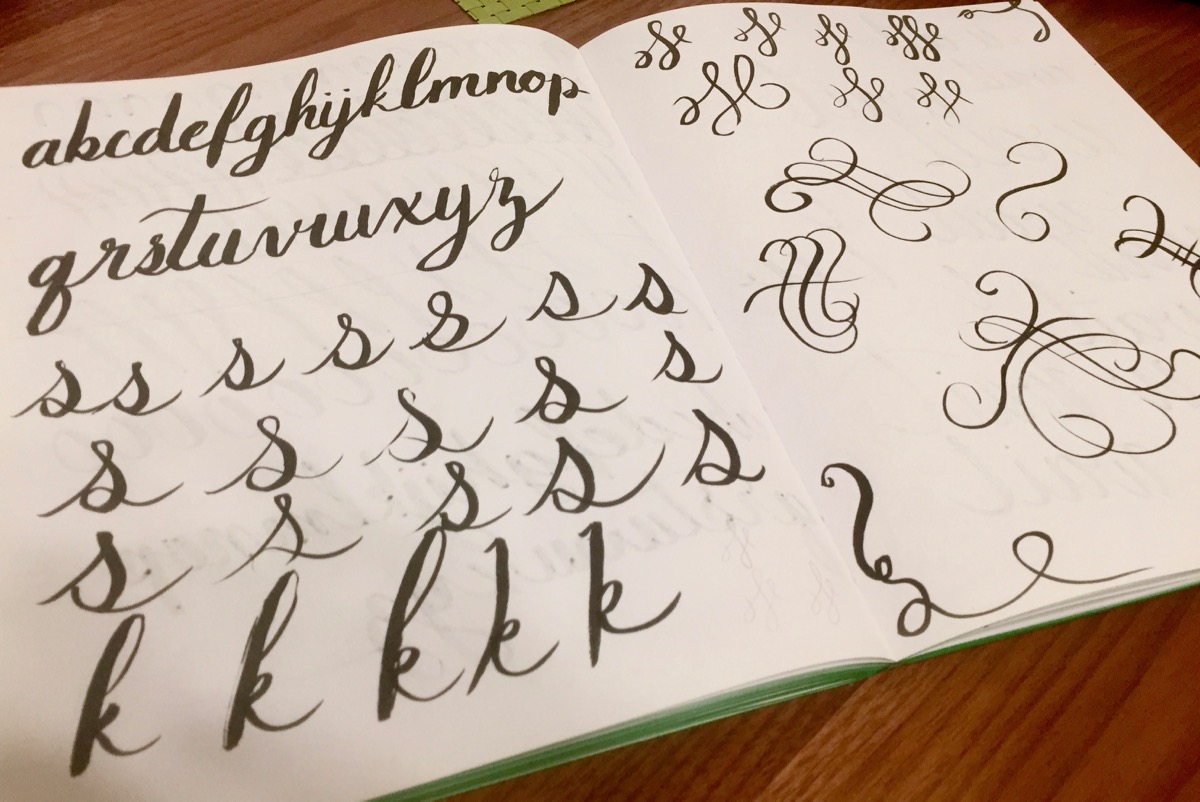 abcdefghijklmnop
qrstuvwxyz
s s s s s s s
s s s s s
s s s s s
k k k k k